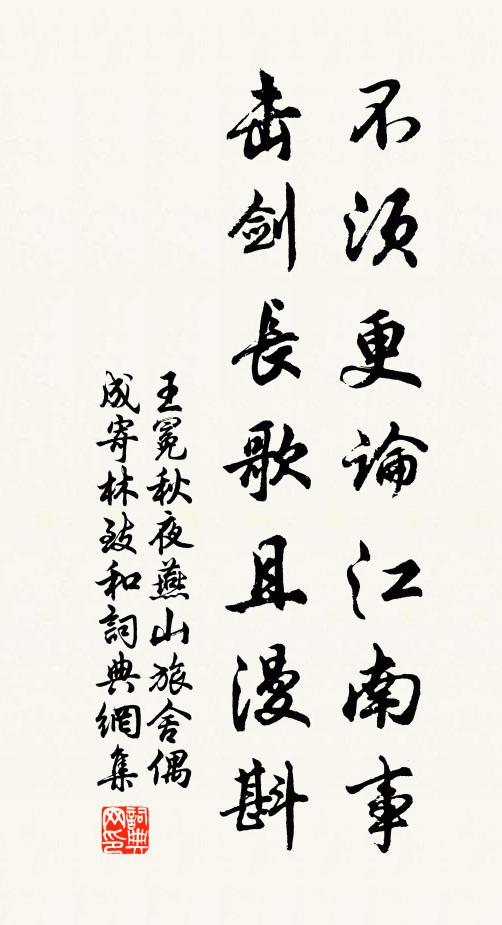 不須更論江南事
击剑長歌且漫斟
王冕秋夜燕山旅舍偶
成寄林致和詞典網集
詞典
网印